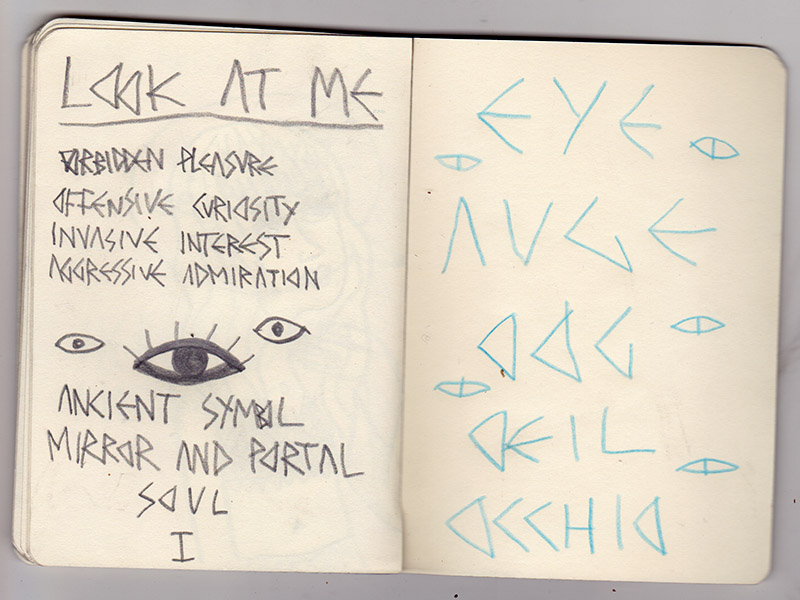 LOOK AT ME
FORBIDDEN PLEASURE
OFFENSIVE CURIOSITY
INVASIVE INTEREST
AGGRESSIVE ADMIRATION
ANCIENT SYMBOL
MIRROR AND PORTAL
SOUL
I
EYE
AUGE
OOG
ŒIL
OCCHIO